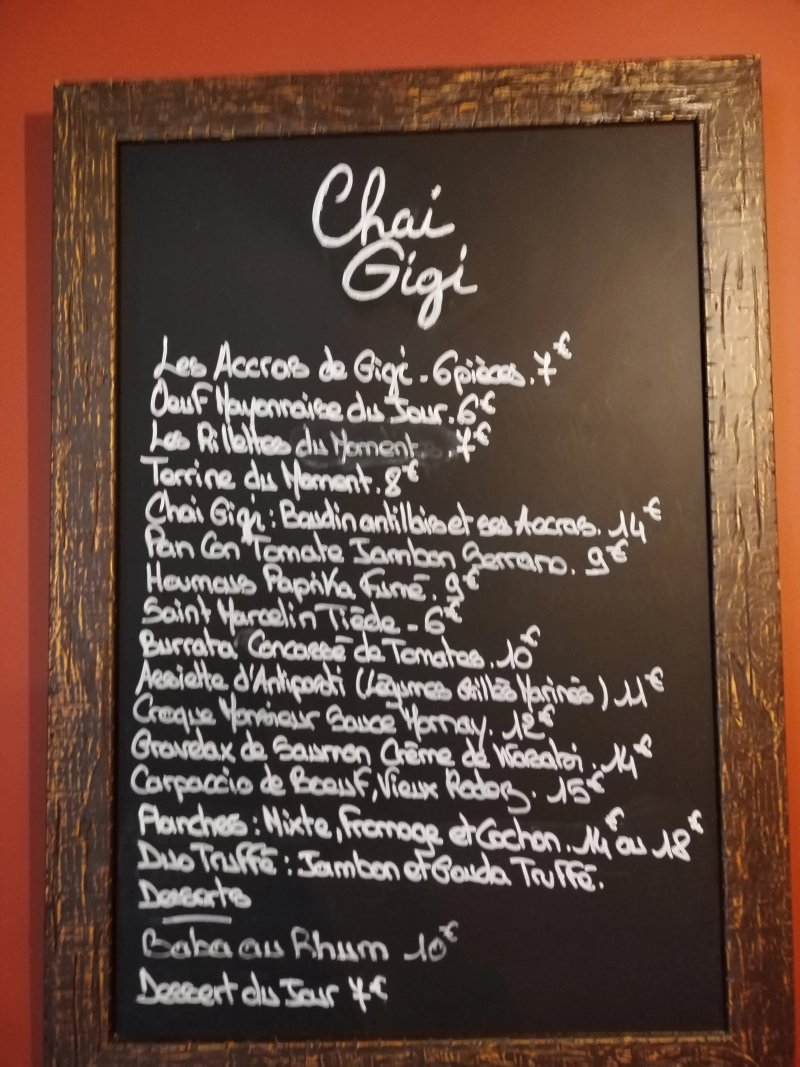 Chai
Gigi
Les Accros de Gigi - 6 pièces. 7€
Oeuf Mayonnaise du Jour. 6€
Les Rillettes du Moment. 7€
Terrine du Moment. 8€
Chai Gigi : Boudin antillais et ses Accras. 14€
Pan Con Tomate Jambon Serrano. 9€
Houmous Paprika Fumé. 9€
Saint Marcelin Tiède - 6€
Burrata Concassé de Tomates. 10€
Assiette d'Antipasti (Légumes Grillés Marinés) 11€
Croque Monsieur Sauce Mornay. 12€
Gravelax de Saumon Crème de Wasabi. 14€
Carpaccio de Boeuf, Vieux Rodez. 15€
Planches : Mixte, Fromage et Cochon. 14€ ou 18€
Duo Truffé : Jambon et Gouda Truffé.
Desserts
Baba au Rhum 10€
Dessert du Jour 7€